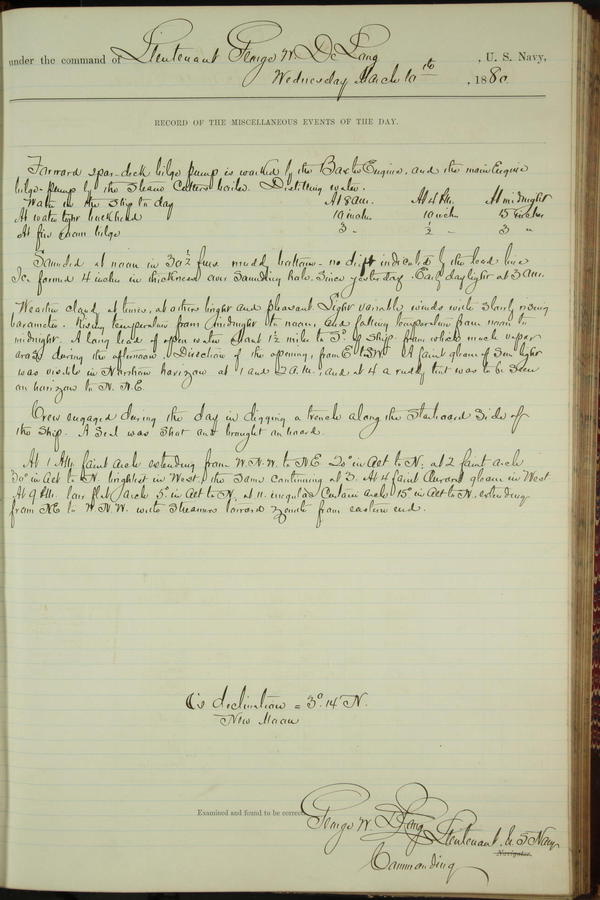 under the command of Lieutenant George W. De Long, U. S. Navy,
Wednesday March 10th, 1880
RECORD OF THE MISCELLANEOUS EVENTS OF THE DAY.
Forward spar-deck bilge pump is worked by the Baxter Engine, and the main Engine
bilge-pump by the Steam Cutters boiler. Distilling water.
Water in the Ship to day At 8 am. At 4 Pm. At midnight
At water tight bulkhead 10 inches 10 inch 15 inches
At fire room bilge 3 " ½ " 3 "
Sounded at noon in 30½ fms muddy bottom - no drift indicated by the lead line
Ice formed 4 inches in thickness over Sounding hole since yesterday. Early daylight at 3 am.
Weather cloudy at times, at others bright and pleasant. Light variable winds with slowly rising
barometer. Rising temperature from midnight to noon, and falling temperature from noon to
midnight. A long lead of open water about 1½ mile to Sd. of Ship from which much vapor
arose during the afternoon. Direction of the opening, from E to SW. A faint gleam of Sun light
was visible in Northern horizon at 1 and 2 a.m., and at 4 a ruddy tint was to be seen
on horizon to N. N.E.
Crew engaged during the day in digging a trench along the Starboard Side of
the Ship. A Seal was Shot and brought on board.
At 1 AM faint arch extending from W.N.W. to NE 20° in alt to N, at 2 faint arch
30° in alt to N. brightest in West, the same continuing at 3. At 4 faint Auroral gleam in West
At 9 PM. low flat arch 5° in alt to N, at 11. irregular Curtain arch 15° in alt to N. extending
from NE to W N W. with Streamers toward zenith from eastern end.
☾'s declination = 3°.14' N.
New Moon
Examined and found to be correct.
George W. De Long Lieutenant U S Navy
Navigator.
Commanding